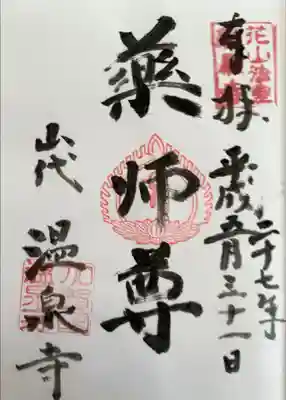 奉拝 平成二十七年五月三十一日
薬师尊
山代 温泉寺